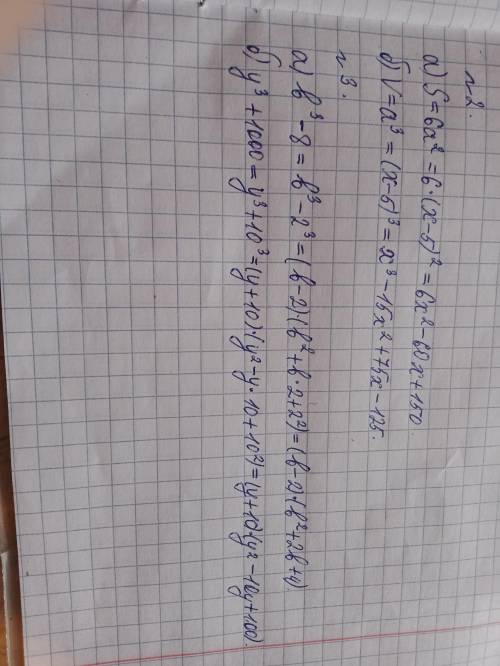 n2.
а) S = 6a² = 6·(x-5)² = 6x² - 60x + 150
б) V = a³ = (x-5)³ = x³ - 15x² + 75x - 125.
n3.
а) b³ - 8 = b³ - 2³ = (b-2)(b² + b·2 + 2²) = (b-2)·(b² + 2b + 4)
б) y³ + 1000 = y³ + 10³ = (y+10)·(y² - y·10 + 10²) = (y+10)(y² - 10y + 100).